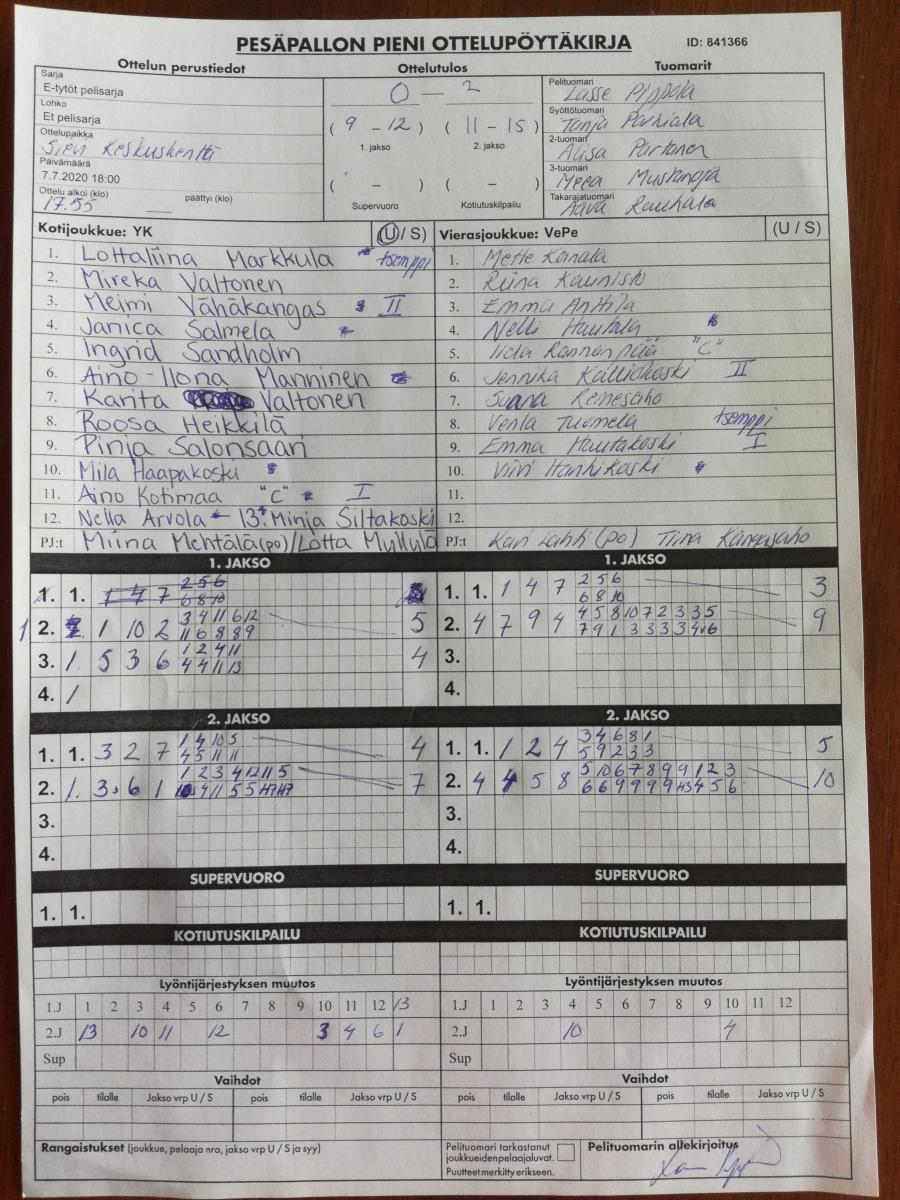 PESÄPALLON PIENI OTTELUPÖYTÄKIRJA ID: 841366
Ottelun perustiedot Ottelutulos Tuomarit
Sarja
E-tytöt pelisarja
Lohko
Et pelisarja
Ottelupaikka
Sievi Keskuskenttä
Päivämäärä
7.7.2020 18:00
Ottelu alkoi (klo) päättyi (klo)
17.55
0 — 2
( 9 - 12 ) ( 11 - 15 )
1. jakso 2. jakso
( - ) ( - )
Supervuoro Kotiutuskilpailu
Pelituomari
Lasse Pippola
Syöttötuomari
Tanja Parhiala
2-tuomari
Aiisa Partanen
3-tuomari
Meea Mustonoja
Takarajatuomari
Aava Rauhala
Kotijoukkue: YK (U / S)
1. Lottaliina Markkula tsemppi
2. Mireka Valtonen
3. Meimi Vähäkangas II
4. Janica Salmela
5. Ingrid Sandholm
6. Aino-Ilona Manninen
7. Karita Valtonen
8. Roosa Heikkilä
9. Pinja Salonsaari
10. Mila Haapakoski
11. Aino Kotimaa "C" I
12. Nella Arvola 13. Minja Siltakoski
PJ:t Miina Mehtälä(po)/Lotta Myllylä
Vierasjoukkue: VePe (U / S)
1. Mette Kainala
2. Riina Kaunisto
3. Emma Anttila
4. Nelli Hautala
5. Iida Rannanpää "C"
6. Jennika Kalliokoski II
7. Saana Kenesaho
8. Venla Tuomela tsemppi
9. Emma Hautakoski I
10. Viivi Hanhikoski
11.
12.
PJ:t Kari Lahti (po) Tiina Kangasaho
1. JAKSO
1. 1. 1 4 7 2 5 6
6 8 10
1 2. 1 10 2 3 4 11 6 12 5
11 6 8 8 9
3. 1. 5 3 6 1 2 4 11 4
4 4 11 13
4. 1
1. JAKSO
1. 1. 1 4 7 2 5 6 3
6 8 10
2. 4 7 9 4 4 5 8 10 7 2 3 3 5 9
7 9 1 3 3 3 3 4 6
3.
4.
2. JAKSO
1. 1. 3 2 7 1 4 10 5 4
4 5 11 11
2. 1. 3. 6 1 1 2 3 4 12 11 5 7
4 11 5 5
3.
4.
2. JAKSO
1. 1. 1 2 4 3 4 6 8 1 5
5 9 2 3 3
2. 4 4 5 8 5 10 6 7 8 9 9 1 2 3 10
6 6 9 9 9 9 4 5 6
3.
4.
SUPERVUORO
1. 1.
SUPERVUORO
1. 1.
KOTIUTUSKILPAILU
KOTIUTUSKILPAILU
Lyöntijärjestyksen muutos
1.J 1 2 3 4 5 6 7 8 9 10 11 12 13
2.J 13 10 11 12 3 4 6 1
Sup
Lyöntijärjestyksen muutos
1.J 1 2 3 4 5 6 7 8 9 10 11 12
2.J 10 4
Sup
Vaihdot
pois tilalle Jakso vrp U / S pois tilalle Jakso vrp U / S
Vaihdot
pois tilalle Jakso vrp U / S pois tilalle Jakso vrp U / S
Rangaistukset (joukkue, pelaaja nro, jakso vrp U / S ja syy)
Pelituomari tarkastanut
joukkueidenpelaajaluvat.
Puutteet merkitty erikseen.
Pelituomarin allekirjoitus